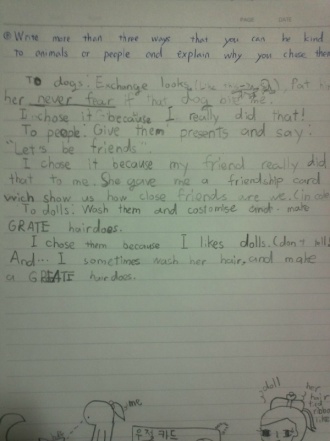 PAGE DATE
Write more than three ways that you can be kind
to animals or people and explain why you chose them
To dogs: Exchange looks, Pat
her never fear if that dog bite me.
I chose it because I really did that!
To people: Give them presents and say:
"Let's be friends".
I chose it because my friend really did
that to me. She gave me a friendship card
wich show us how close friends are we.
To dolls: Wash them and make
GRATE hairdoes.
I chose them because I likes dolls.
And... I sometimes wash her hair, and make
a GREATE hairdoes.
me
doll
her
hair
우정 카드